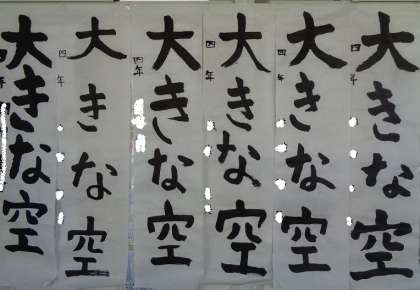 大きな空
四年
大きな空
四年
大きな空
四年
大きな空
四年
大きな空
四年
大きな空
年